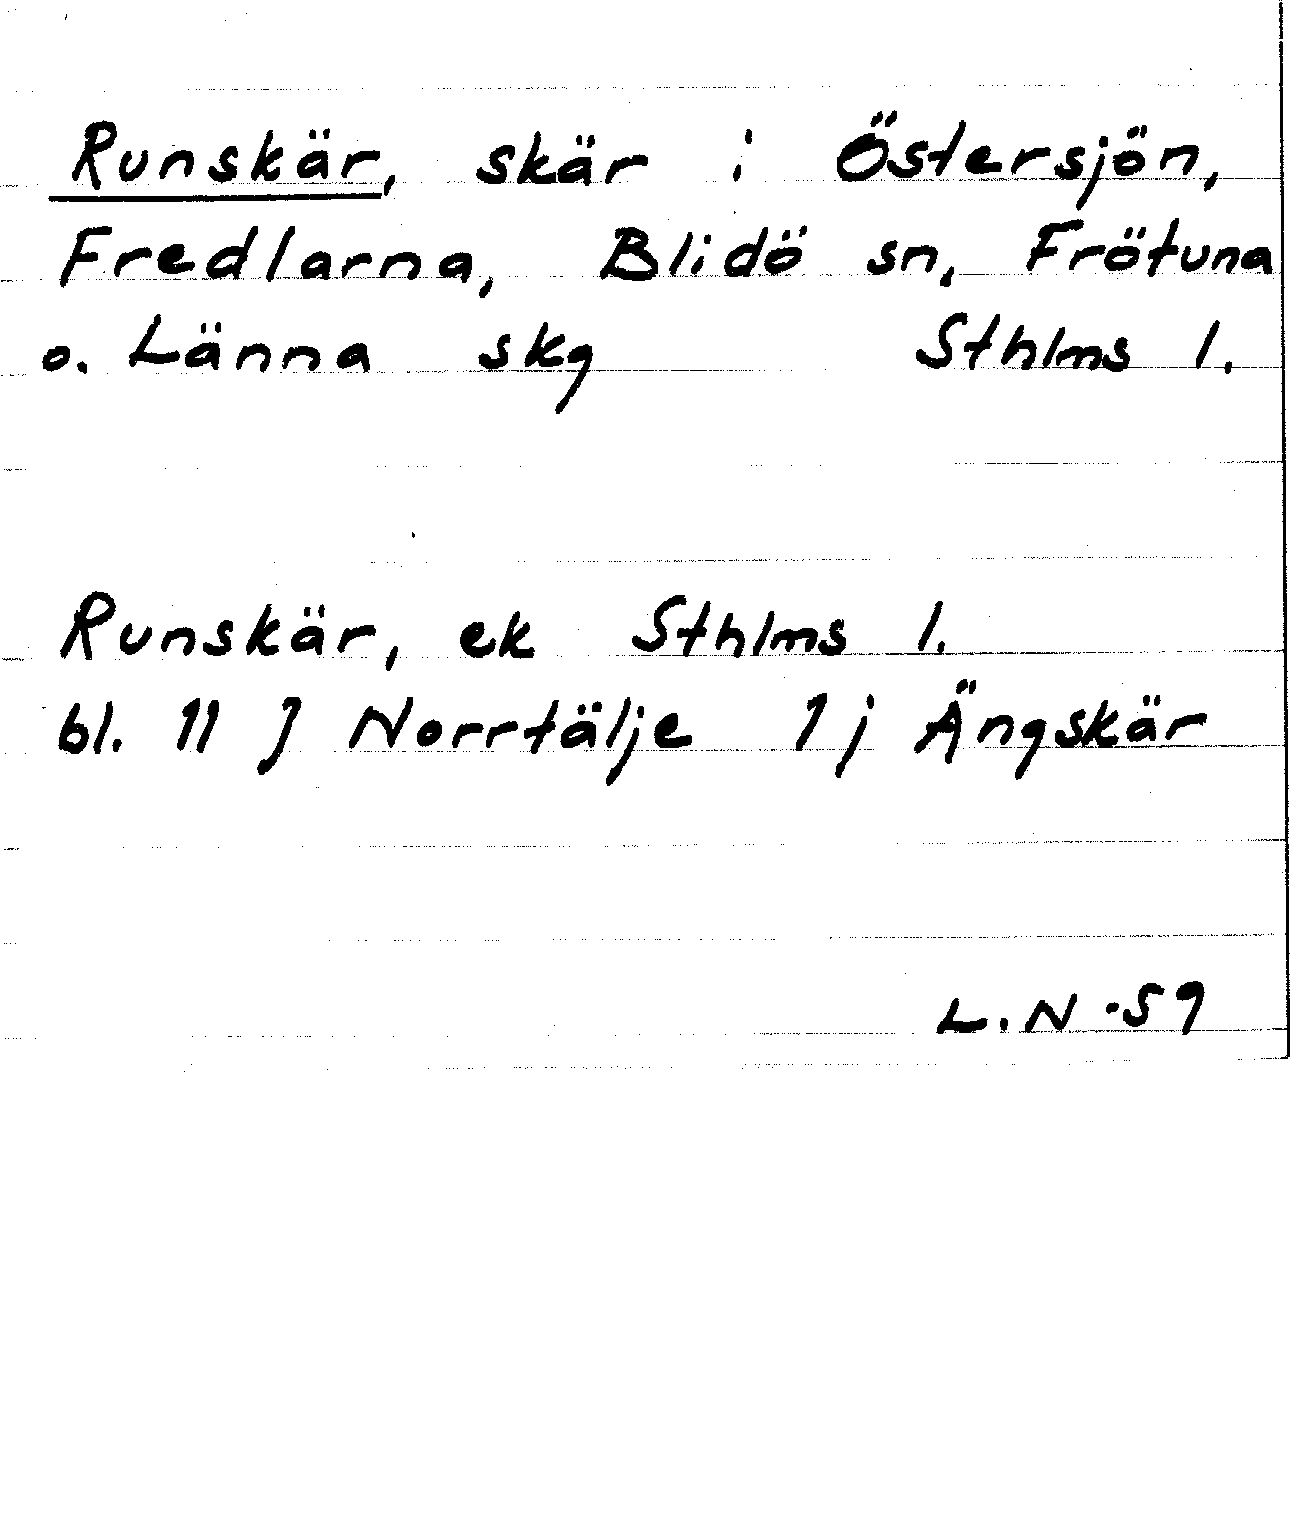 Runskär, skär i Östersjön,
Fredlarna, Blidö sn, Frötuna
o. Länna skg Sthlms l.
Runskär, ek Sthlms l.
bl. 11 J Norrtälje 1 j Ängskär
L. N -59